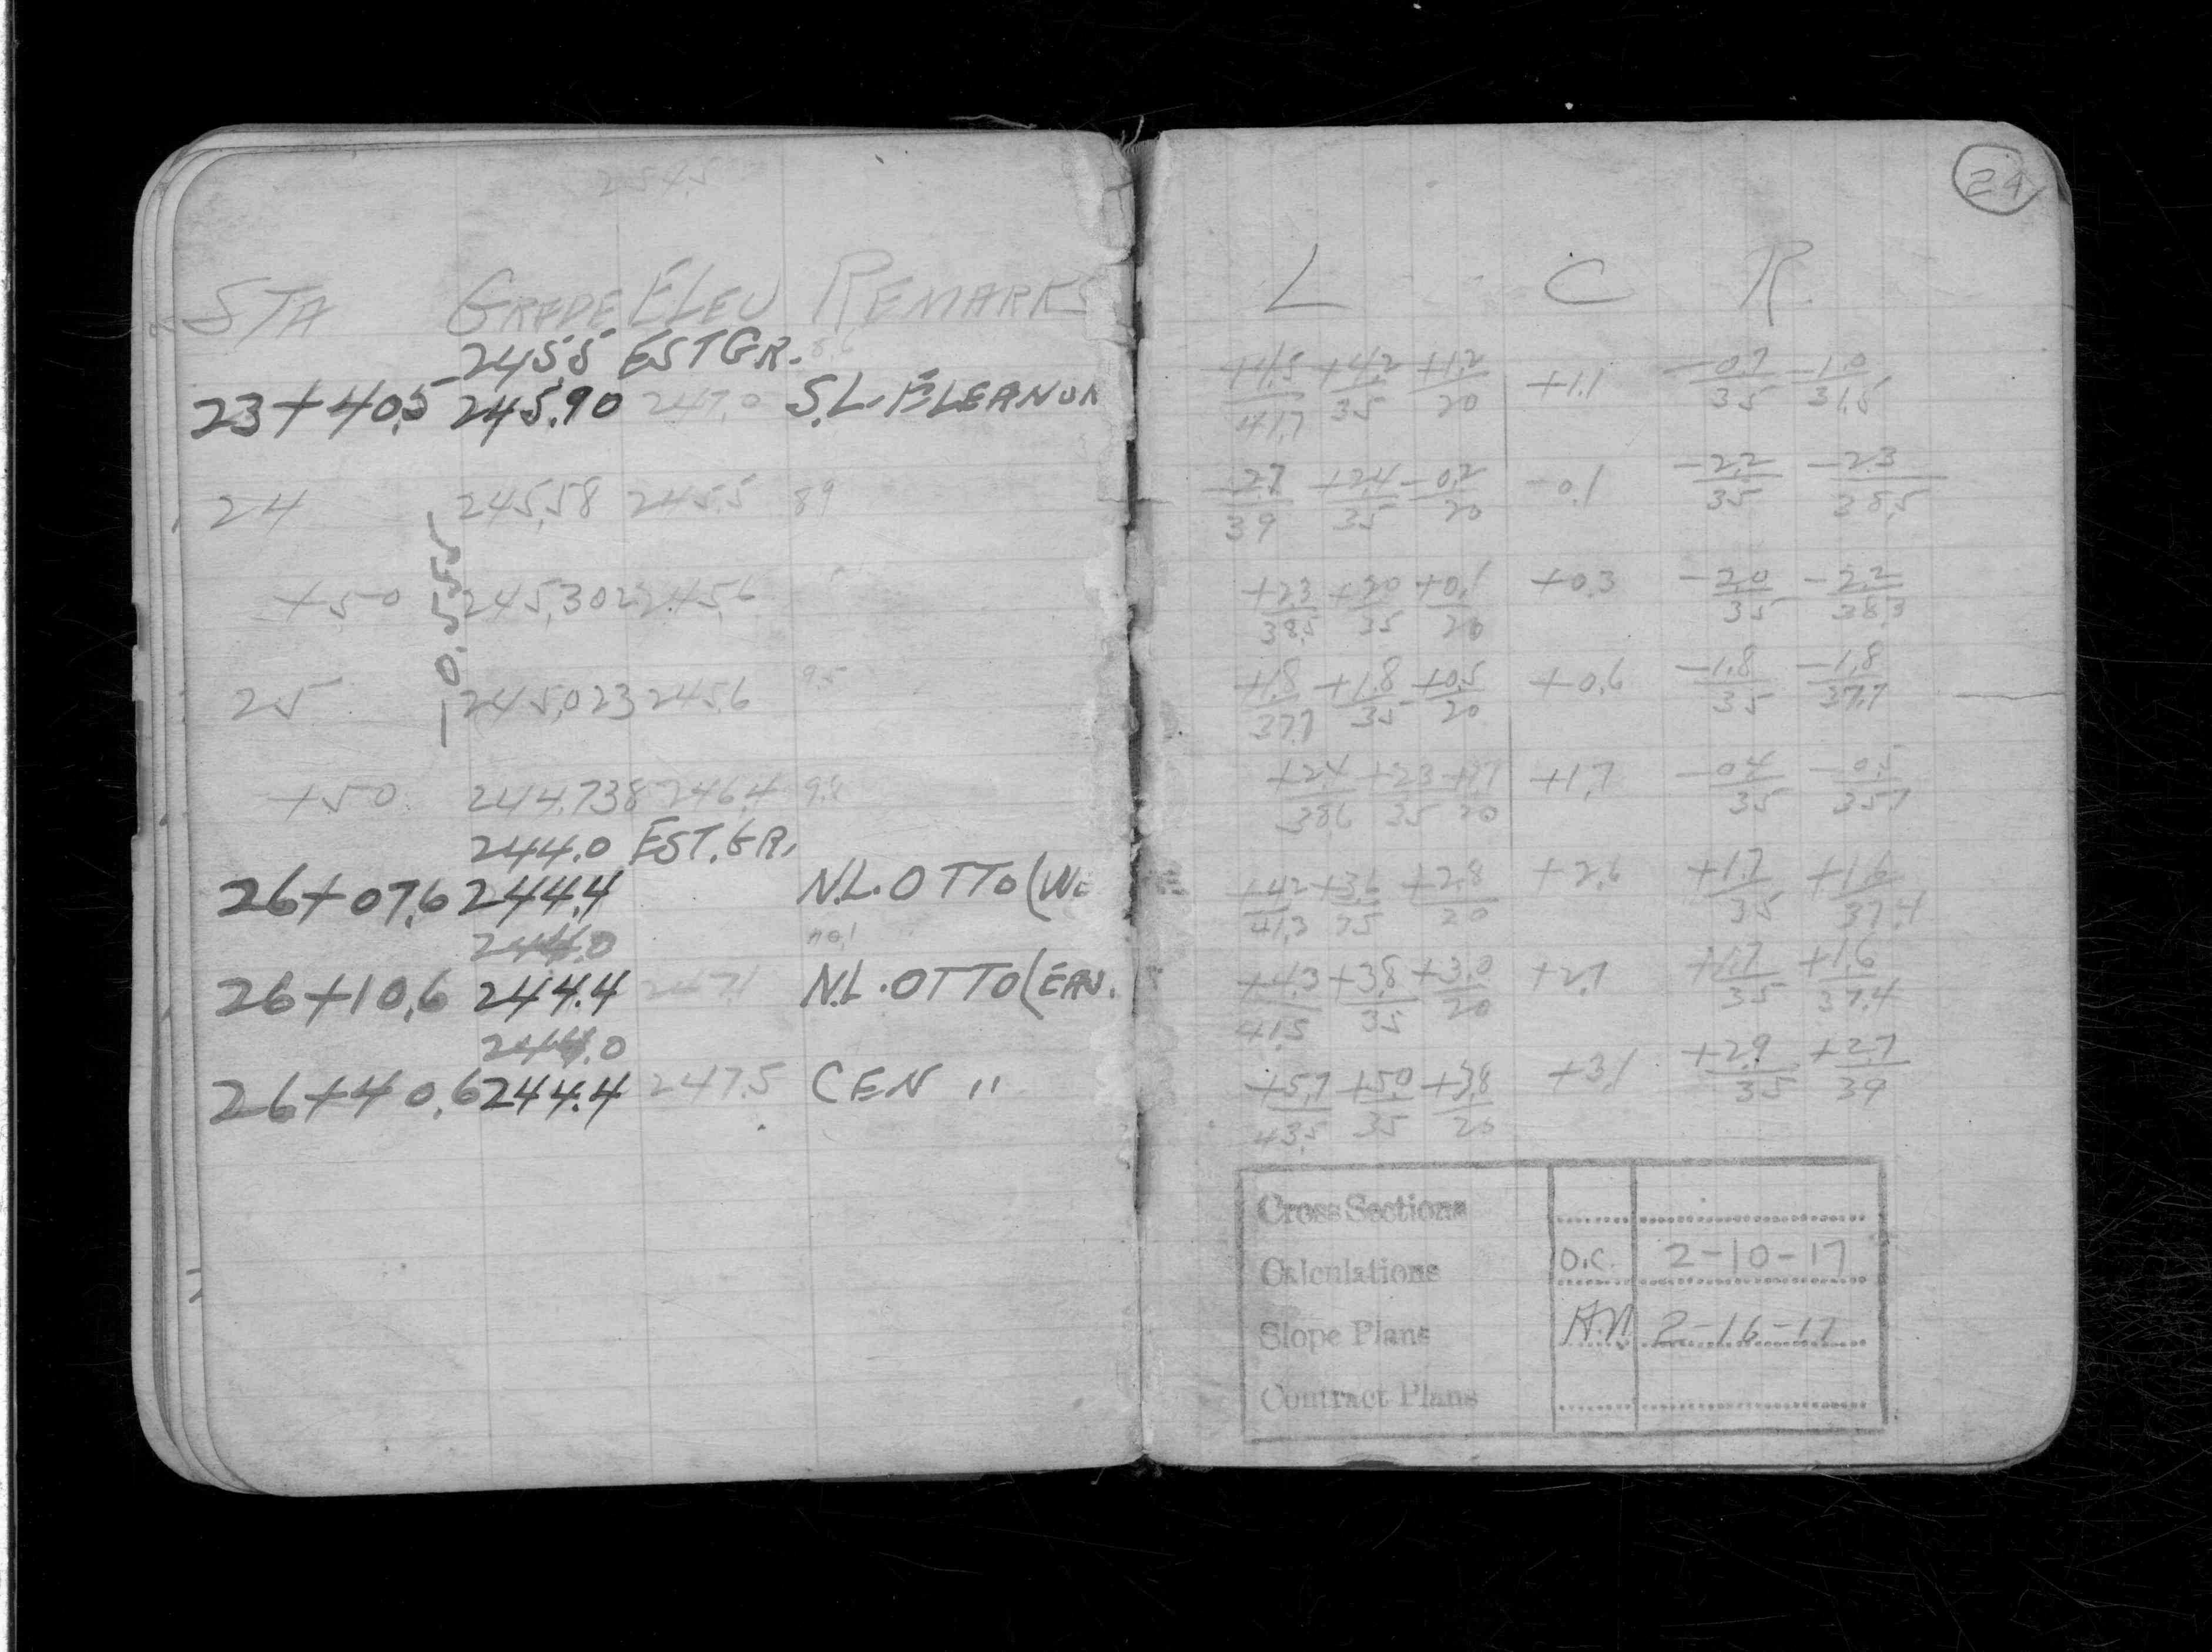 254.5
STA GRADE ELEV REMARKS
245.5 EST GR. 8.6
23+40.5 245.90 247.0 S.L. ELEANOR
24 245.58 245.5 89
+50 245.302 245.6
25 245.023 245.6 9.5
-0.555
+50 244.738 246.4 9.8
244.0 EST. GR.
26+07.6 244.4 N.L. OTTO (WE
244.0
26+10.6 244.4 247.1 N.L. OTTO (EAS.
244.0
26+40.6 244.4 247.5 CEN "
24
L C R
+4.5 +4.2 +1.2 +1.1 -0.7 -1.0
41.7 35 20 35 31.5
-2.7 +2.4 -0.2 -0.1 -2.2 -2.3
39 35 20 35 38.5
+2.3 +2.0 +0.1 +0.3 -2.0 -2.2
38.5 35 20 35 38.3
+1.8 +1.8 +0.5 +0.6 -1.8 -1.8
37.7 35 20 35 37.7
+2.4 +2.3 +1.7 +1.7 -0.4 -0.5
38.6 35 20 35 35.7
+4.2 +3.6 +2.8 +2.6 +1.7 +1.6
41.3 35 20 35 37.4
+4.3 +3.8 +3.0 +2.7 +1.7 +1.6
41.5 35 20 35 37.4
+5.7 +5.0 +3.8 +3.1 +2.9 +2.7
43.5 35 20 35 39
Cross Sections
Calculations O.C. 2-10-17
Slope Plans H.M. 2-16-17
Contract Plans